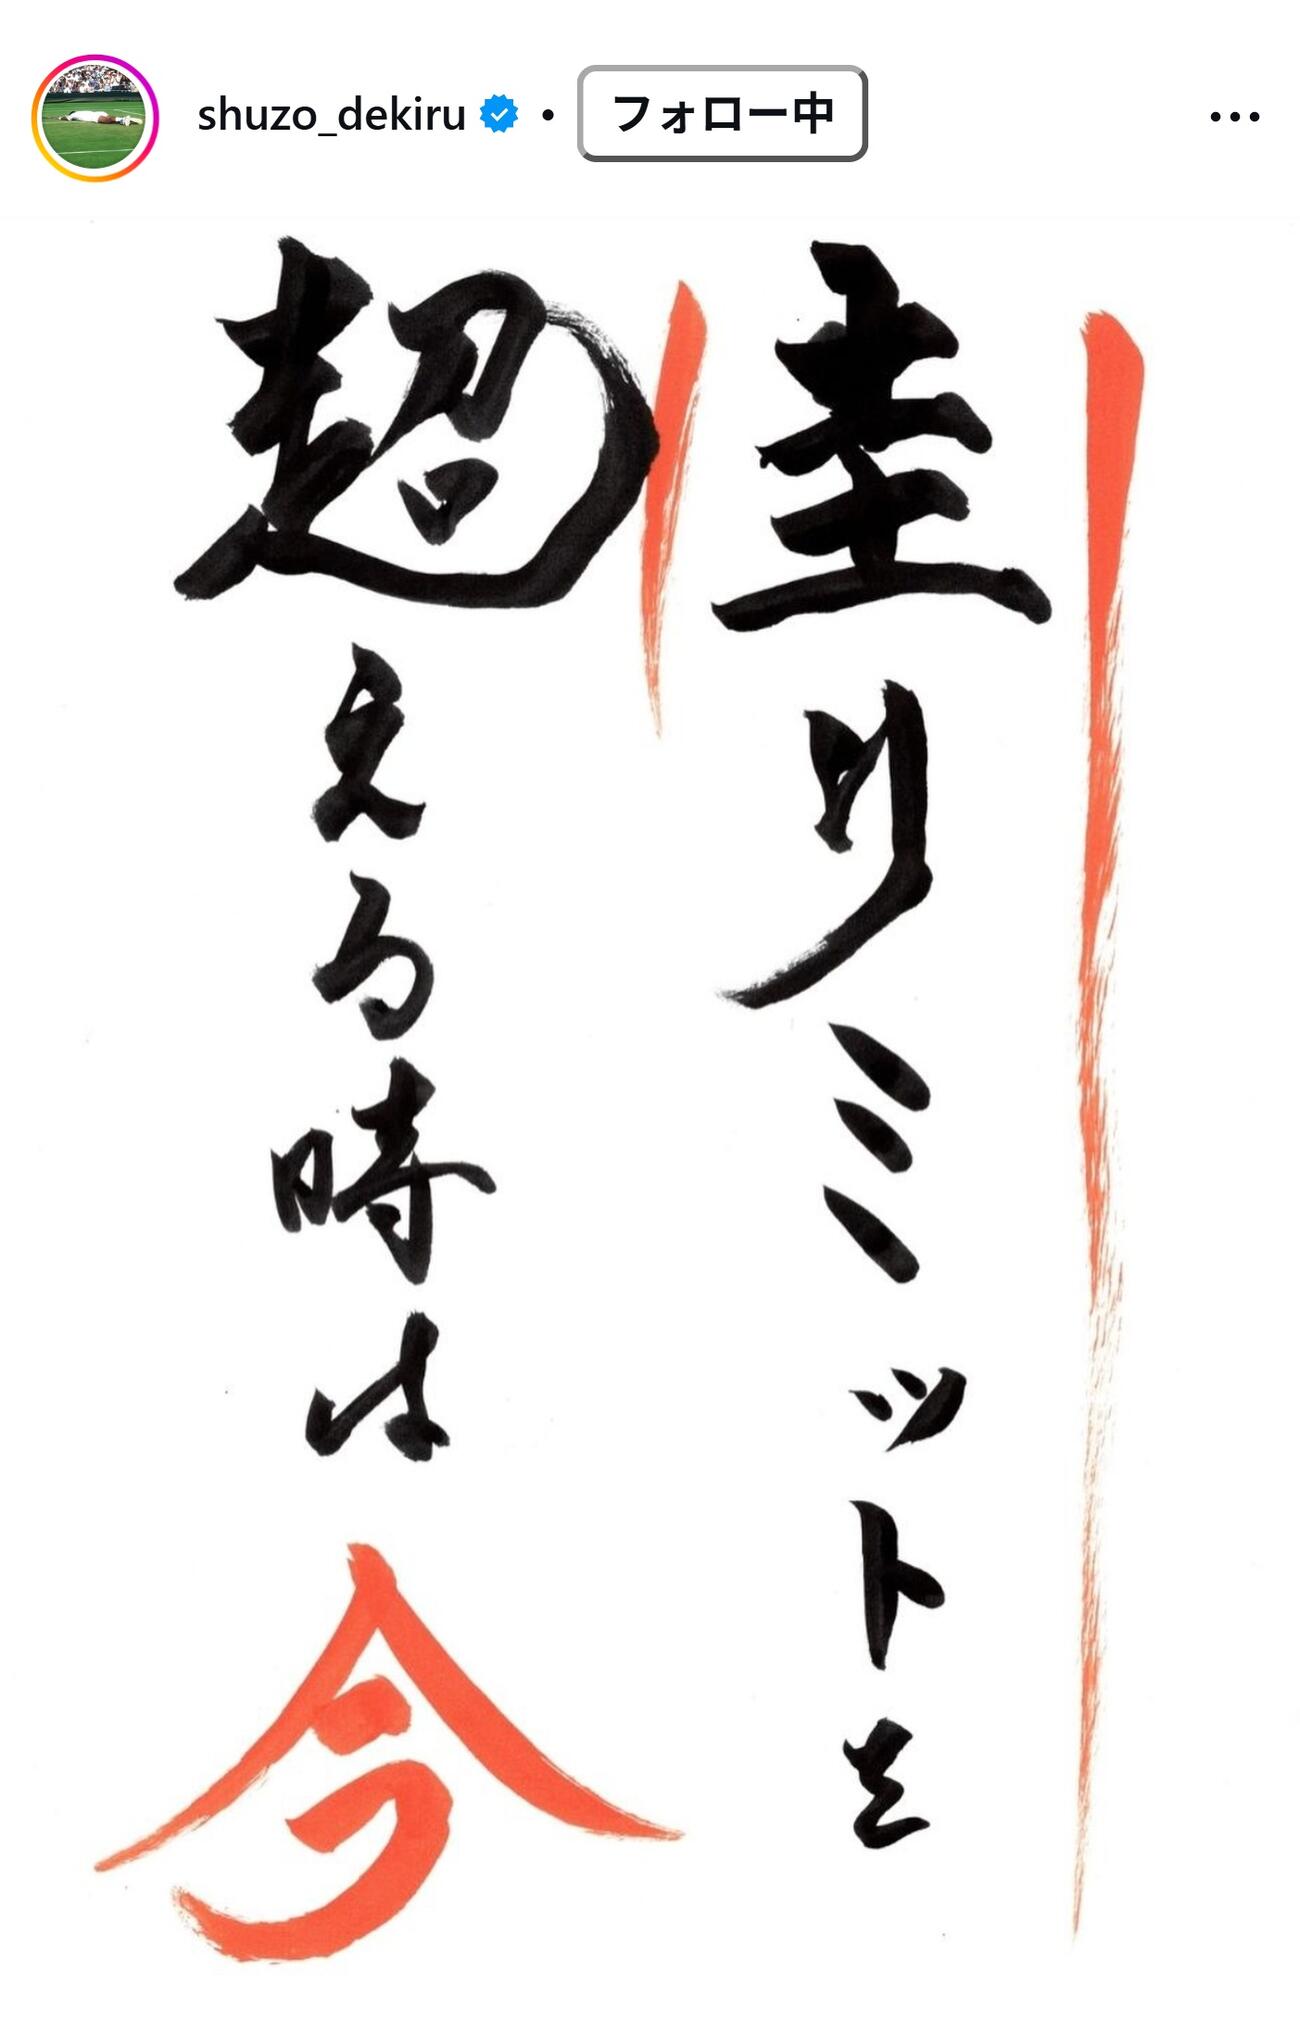 shuzo_dekiru • フォロー中
圭リミットを
超える時は
今